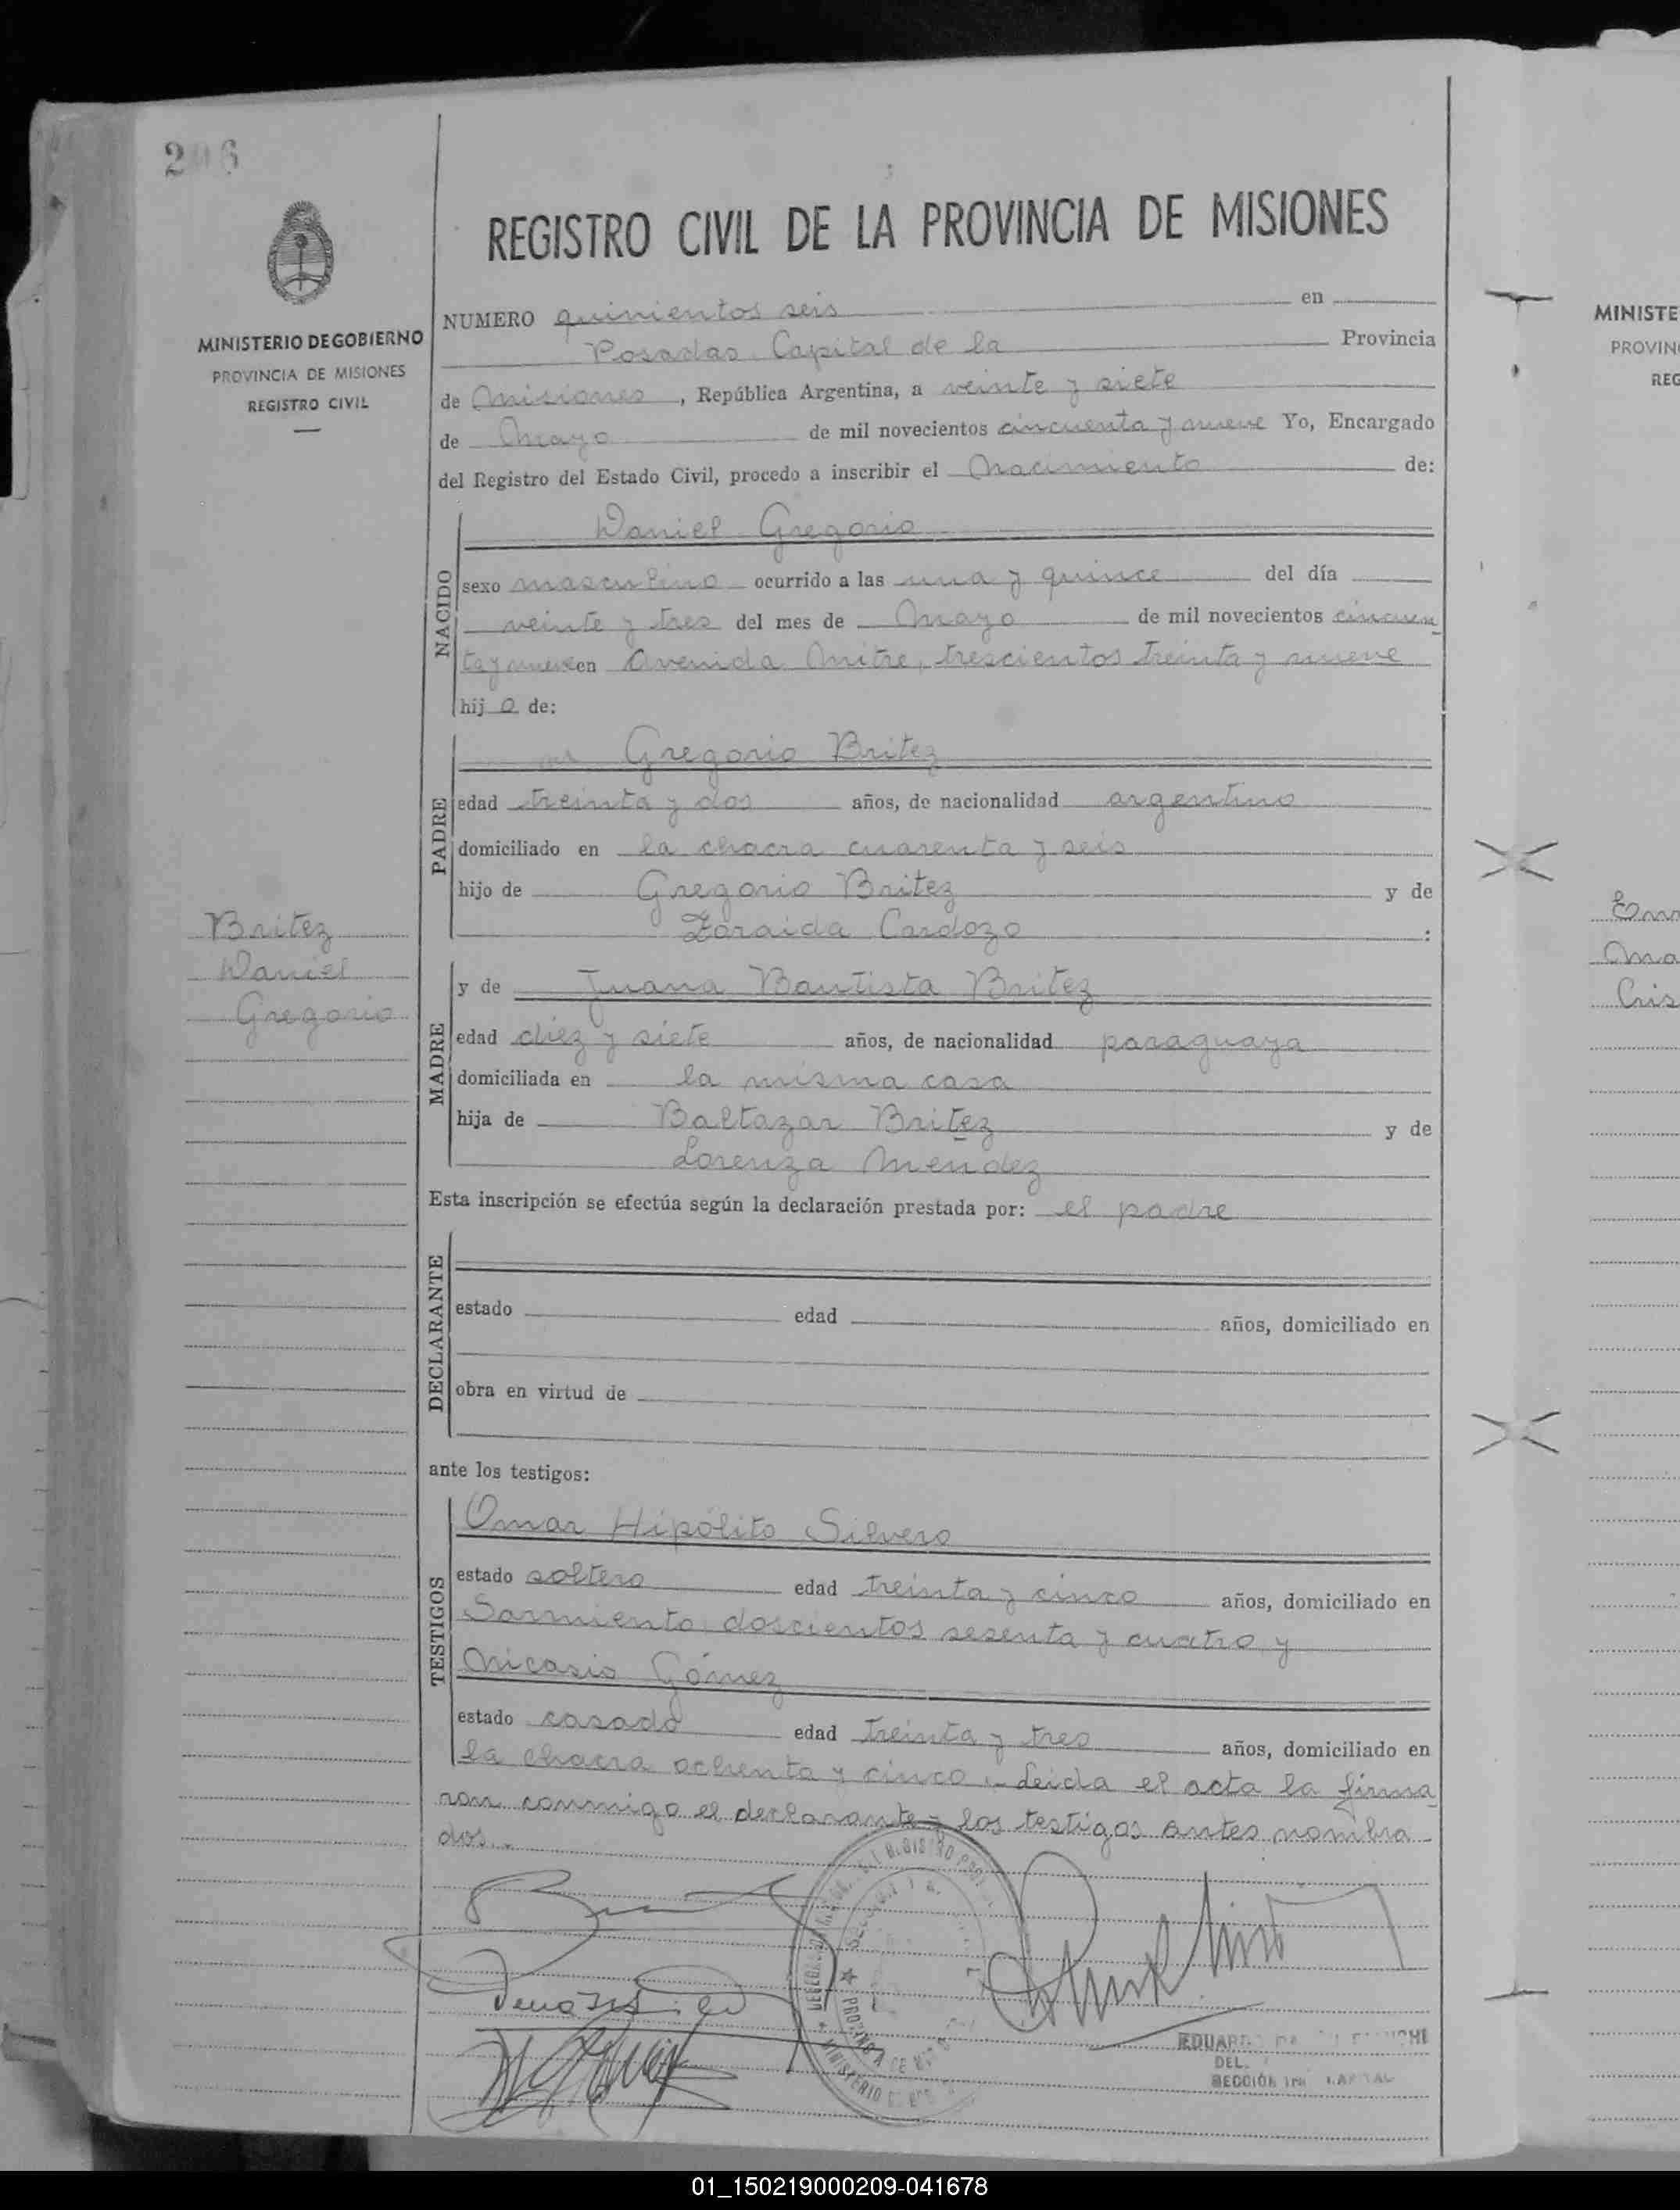 206
MINISTERIO DE GOBIERNO
PROVINCIA DE MISIONES
REGISTRO CIVIL
Britez
Daniel
Gregorio
REGISTRO CIVIL DE LA PROVINCIA DE MISIONES
NUMERO quinientos seis en
Posadas Capital de la Provincia
de Misiones, República Argentina, a veinte y siete
de Mayo de mil novecientos cincuenta y nueve Yo, Encargado
del Registro del Estado Civil, procedo a inscribir el Nacimiento de:
NACIDO
Daniel Gregorio
sexo masculino ocurrido a las una y quince del día
veinte y tres del mes de Mayo de mil novecientos cincuen
ta y nueve en Avenida Mitre, trescientos treinta y nueve
hijo de:
PADRE
Gregorio Britez
edad treinta y dos años, de nacionalidad argentino
domiciliado en la chacra cuarenta y seis
hijo de Gregorio Britez y de
Zoraida Cardozo :
MADRE
y de Juana Bautista Britez
edad diez y siete años, de nacionalidad paraguaya
domiciliada en la misma casa
hija de Baltazar Britez y de
Lorenza Mendez
Esta inscripción se efectúa según la declaración prestada por: el padre
DECLARANTE
estado edad años, domiciliado en
obra en virtud de
ante los testigos:
TESTIGOS
Omar Hipólito Silvero
estado soltero edad treinta y cinco años, domiciliado en
Sarmiento doscientos sesenta y cuatro y
Nicasio Gómez
estado casado edad treinta y tres años, domiciliado en
la chacra ochenta y cinco. Leida el acta la firma
ron conmigo el declarante y los testigos antes nombra
dos.
SECCIÓN
MINISTE
PROVIN
REG
Cris
01_150219000209-041678